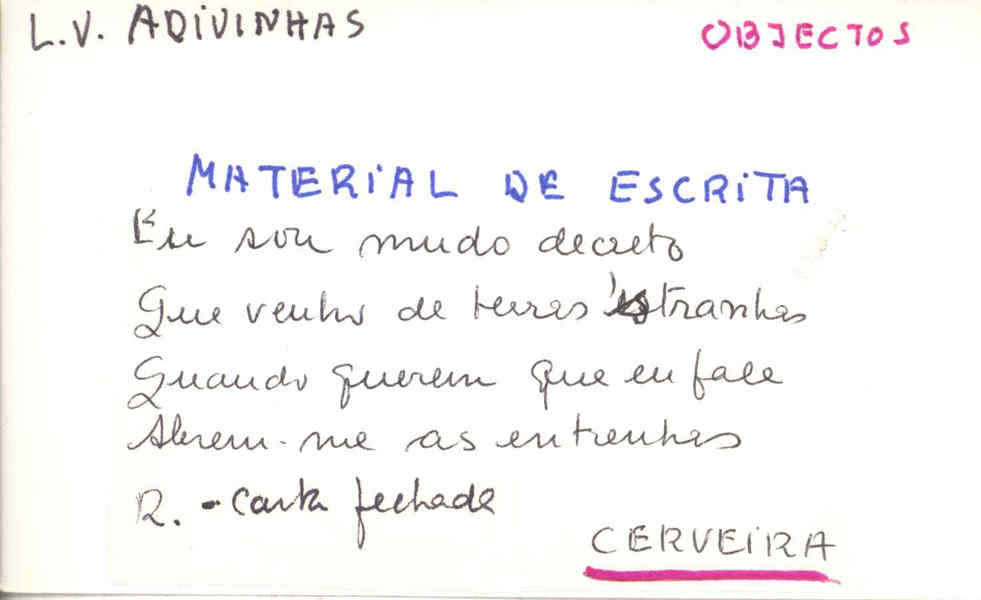 L.V. ADIVINHAS
OBJECTOS
MATERIAL DE ESCRITA
Eu sou mudo decreto
Que venho de terras 'stranhas
Quando querem que eu fale
Abrem-me as entranhas
R. - Carta fechada
CERVEIRA